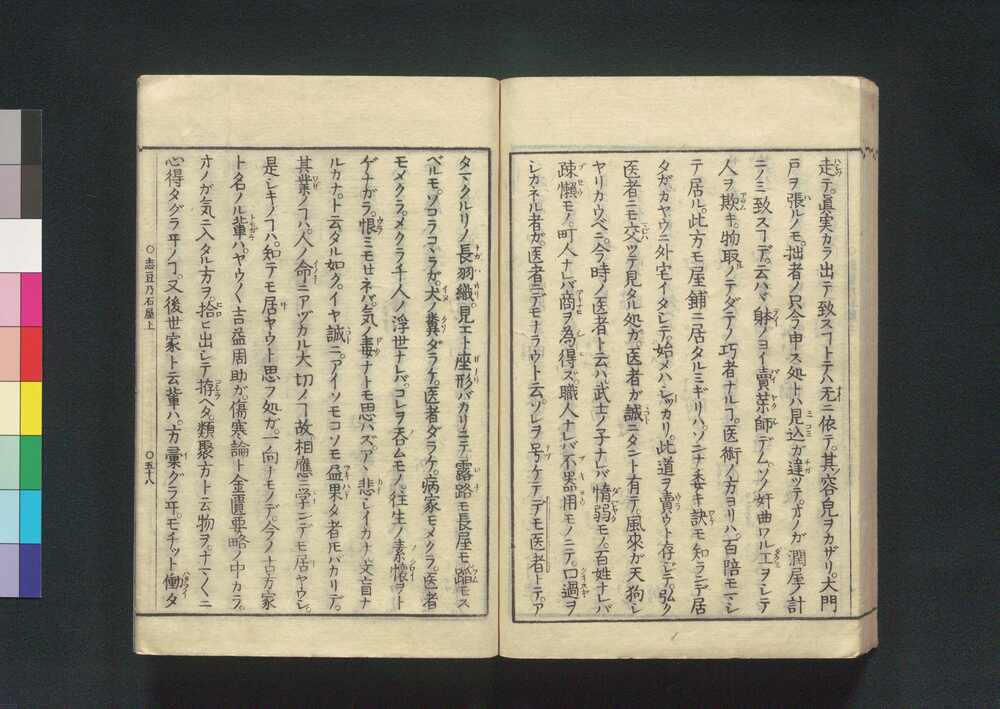 走テ。眞実カラ出テ致スヿトテハ无ニ依テ。其容皃ヲカザリ。大門
戸ヲ張ルノモ。拙者ノ只今申ス処トハ見込ガ違ツテ。オノガ潤屋ノ計
ニノミ致スヿデ。云ハヾ躰ノヨイ賣薬師デム。ソノ奸曲ワル工ヲシテ
人ヲ欺キ。物取ノテダテノ巧者ナルヿ。医術ノ方ヨリハ。百陪モ
テ居ル。此方モ屋鋪ニ居タルミギリハ。ソンナ委キ訣モ知ラニデ居
タガ。カヤウニ外宅イタシテ。始メハシツカリ。此道ヲ賣ウト存ジテ。弘ク
医者ニモ交ツテ見タル処ガ。医者ガ誠ニタント有テ。風來ガ天狗シ
ヤリカウベニ。今時ノ医者ト云ハ武士ノ子ナレバ惰弱モノ。百姓ナレバ
疎懶モノ。町人ナレバ商ヲ為得ズ。職人ナレバ不器用モノニテ。口過ヲ
シカネル者ガ。医者ニデモナラウト云。ソレヲ号ケテデモ医者トテ。ア
タマクルリノ長羽織。見エト座形バカリニテ。露路モ長屋モ踏モス
ベルモ。ソコラコヽラガ。犬ノ糞ダラケ。医者ダラケ。病家モメクラ。医者
モメクラ。メクラ千人ノ浮世ナレバ。コレヲ呑ムモノ。往生ノ素懷ヲト
ゲナガラ。恨ミモセネバ。気ノ毒ナトモ思ハズ。アヽ悲シイカナ文盲ナ
ルカナ。ト云タル如ク。イヤ誠ニ。アイソモコソモ益果タ者モバカリデ。
其業ノヿハ。人ノ命ニアヅカル大切ノヿ故。相應ニ学ンデデモ居ヤウシ。
是シキノヿハ。知テモ居ヤウト思フ処ガ。一向ナモノデ。今ノ古方家
ト名ノル輩ハ。ヤウ〱吉益周助ガ。傷寒論ト金匱要略ノ中カラ。
オノガ気ニ入タル方ヲ拾ヒ出シテ拵ヘタ。類聚方ト云物ヲ。ナマ〱ニ
心得タグラヰノヿ。又後世家ト云輩ハ。方彙グラヰモ。チツト働タ
○志豆乃石屋上 ○五十八